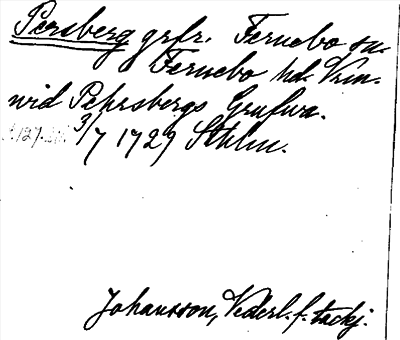 Persberg grfr. Fernebo sn.
Fernebo hd. Vrm.
wid Pehrsbergs Grufwa.
3/7 1729 Sthlm.
Johansson, Vederl. f. tackj.